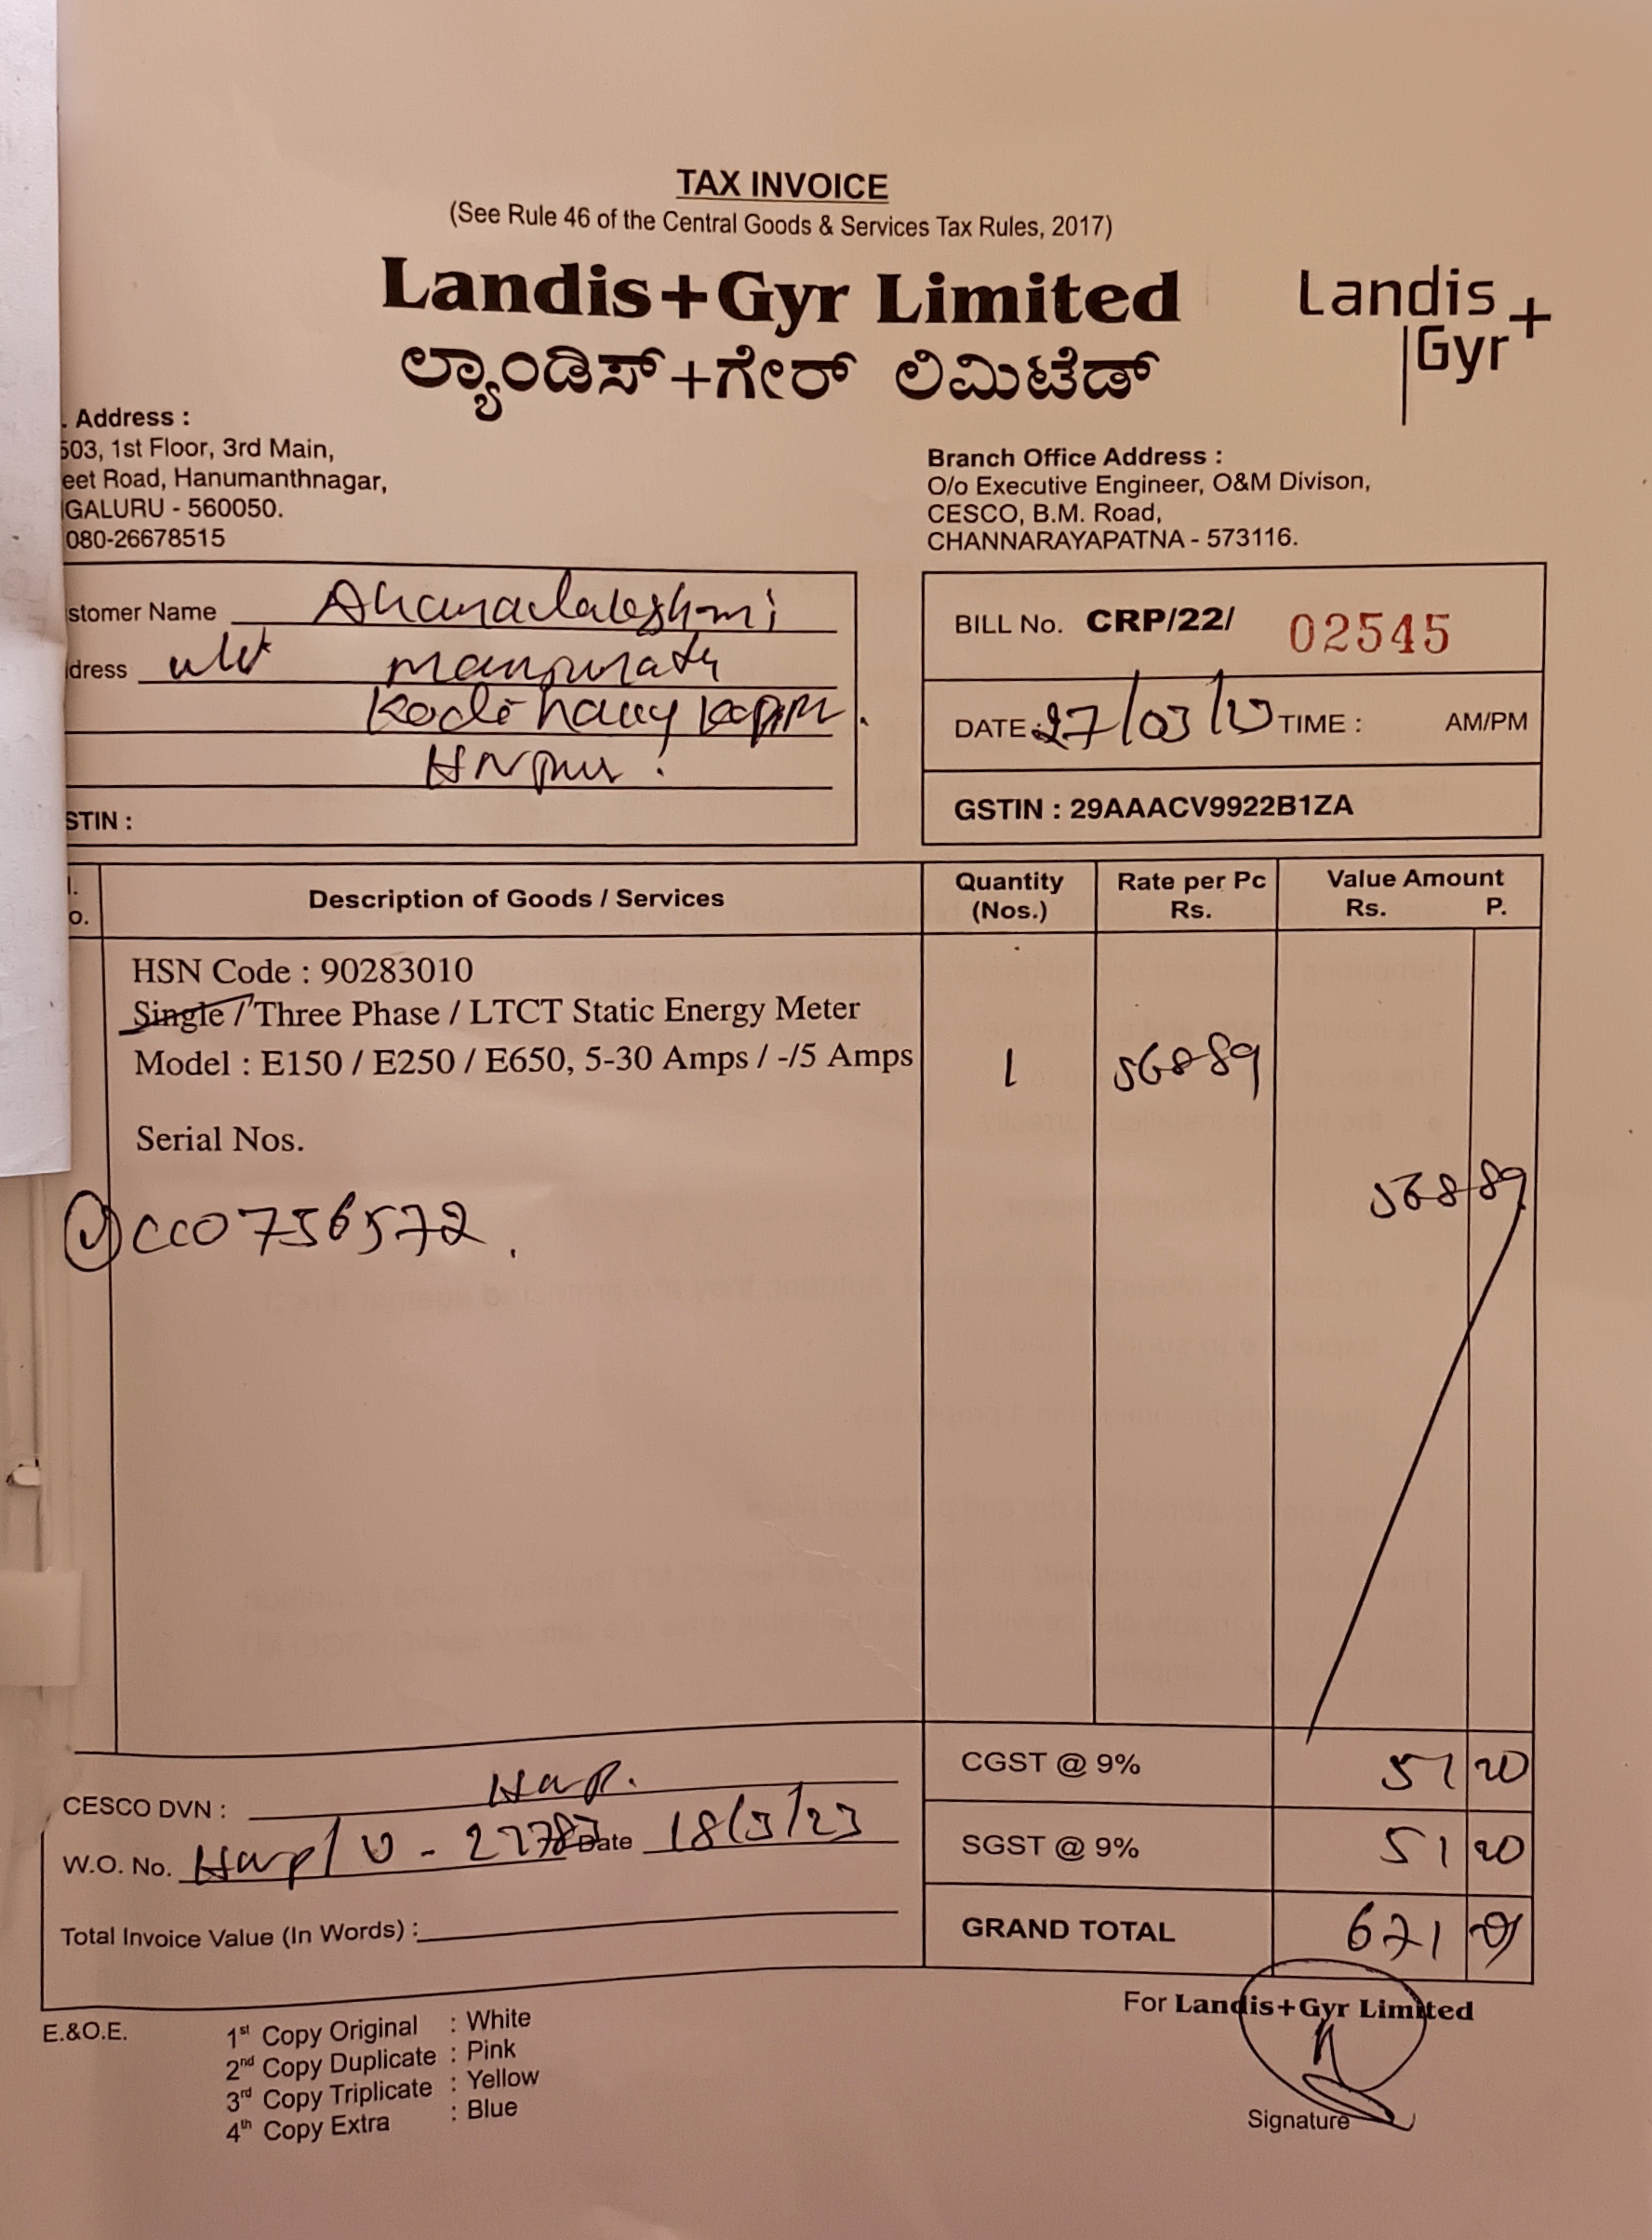 TAX INVOICE
(See Rule 46 of the Central Goods & Services Tax Rules, 2017)
Landis+Gyr Limited
ಲ್ಯಾಂಡಿಸ್+ಗೇರ್ ಲಿಮಿಟೆಡ್
Landis
Gyr+
. Address :
503, 1st Floor, 3rd Main,
eet Road, Hanumanthnagar,
GALURU - 560050.
080-26678515
Branch Office Address :
O/o Executive Engineer, O&M Divison,
CESCO, B.M. Road,
CHANNARAYAPATNA - 573116.
stomer Name
dress
STIN :
BILL No. CRP/22/ 02545
DATE : 27/03/ TIME : AM/PM
GSTIN : 29AAACV9922B1ZA
l. Description of Goods / Services Quantity Rate per Pc Value Amount
o. (Nos.) Rs. Rs. P.
HSN Code : 90283010
Single / Three Phase / LTCT Static Energy Meter
Model : E150 / E250 / E650, 5-30 Amps / -/5 Amps 1 56889
Serial Nos.
568 89
CC0756572.
CESCO DVN : Hnp.
W.O. No. Date 18/3/23
Total Invoice Value (In Words) :
CGST @ 9% 51 20
SGST @ 9% 51 20
GRAND TOTAL 671
For Landis+Gyr Limited
Signature
E.&O.E.
1st Copy Original : White
2nd Copy Duplicate : Pink
3rd Copy Triplicate : Yellow
4th Copy Extra : Blue